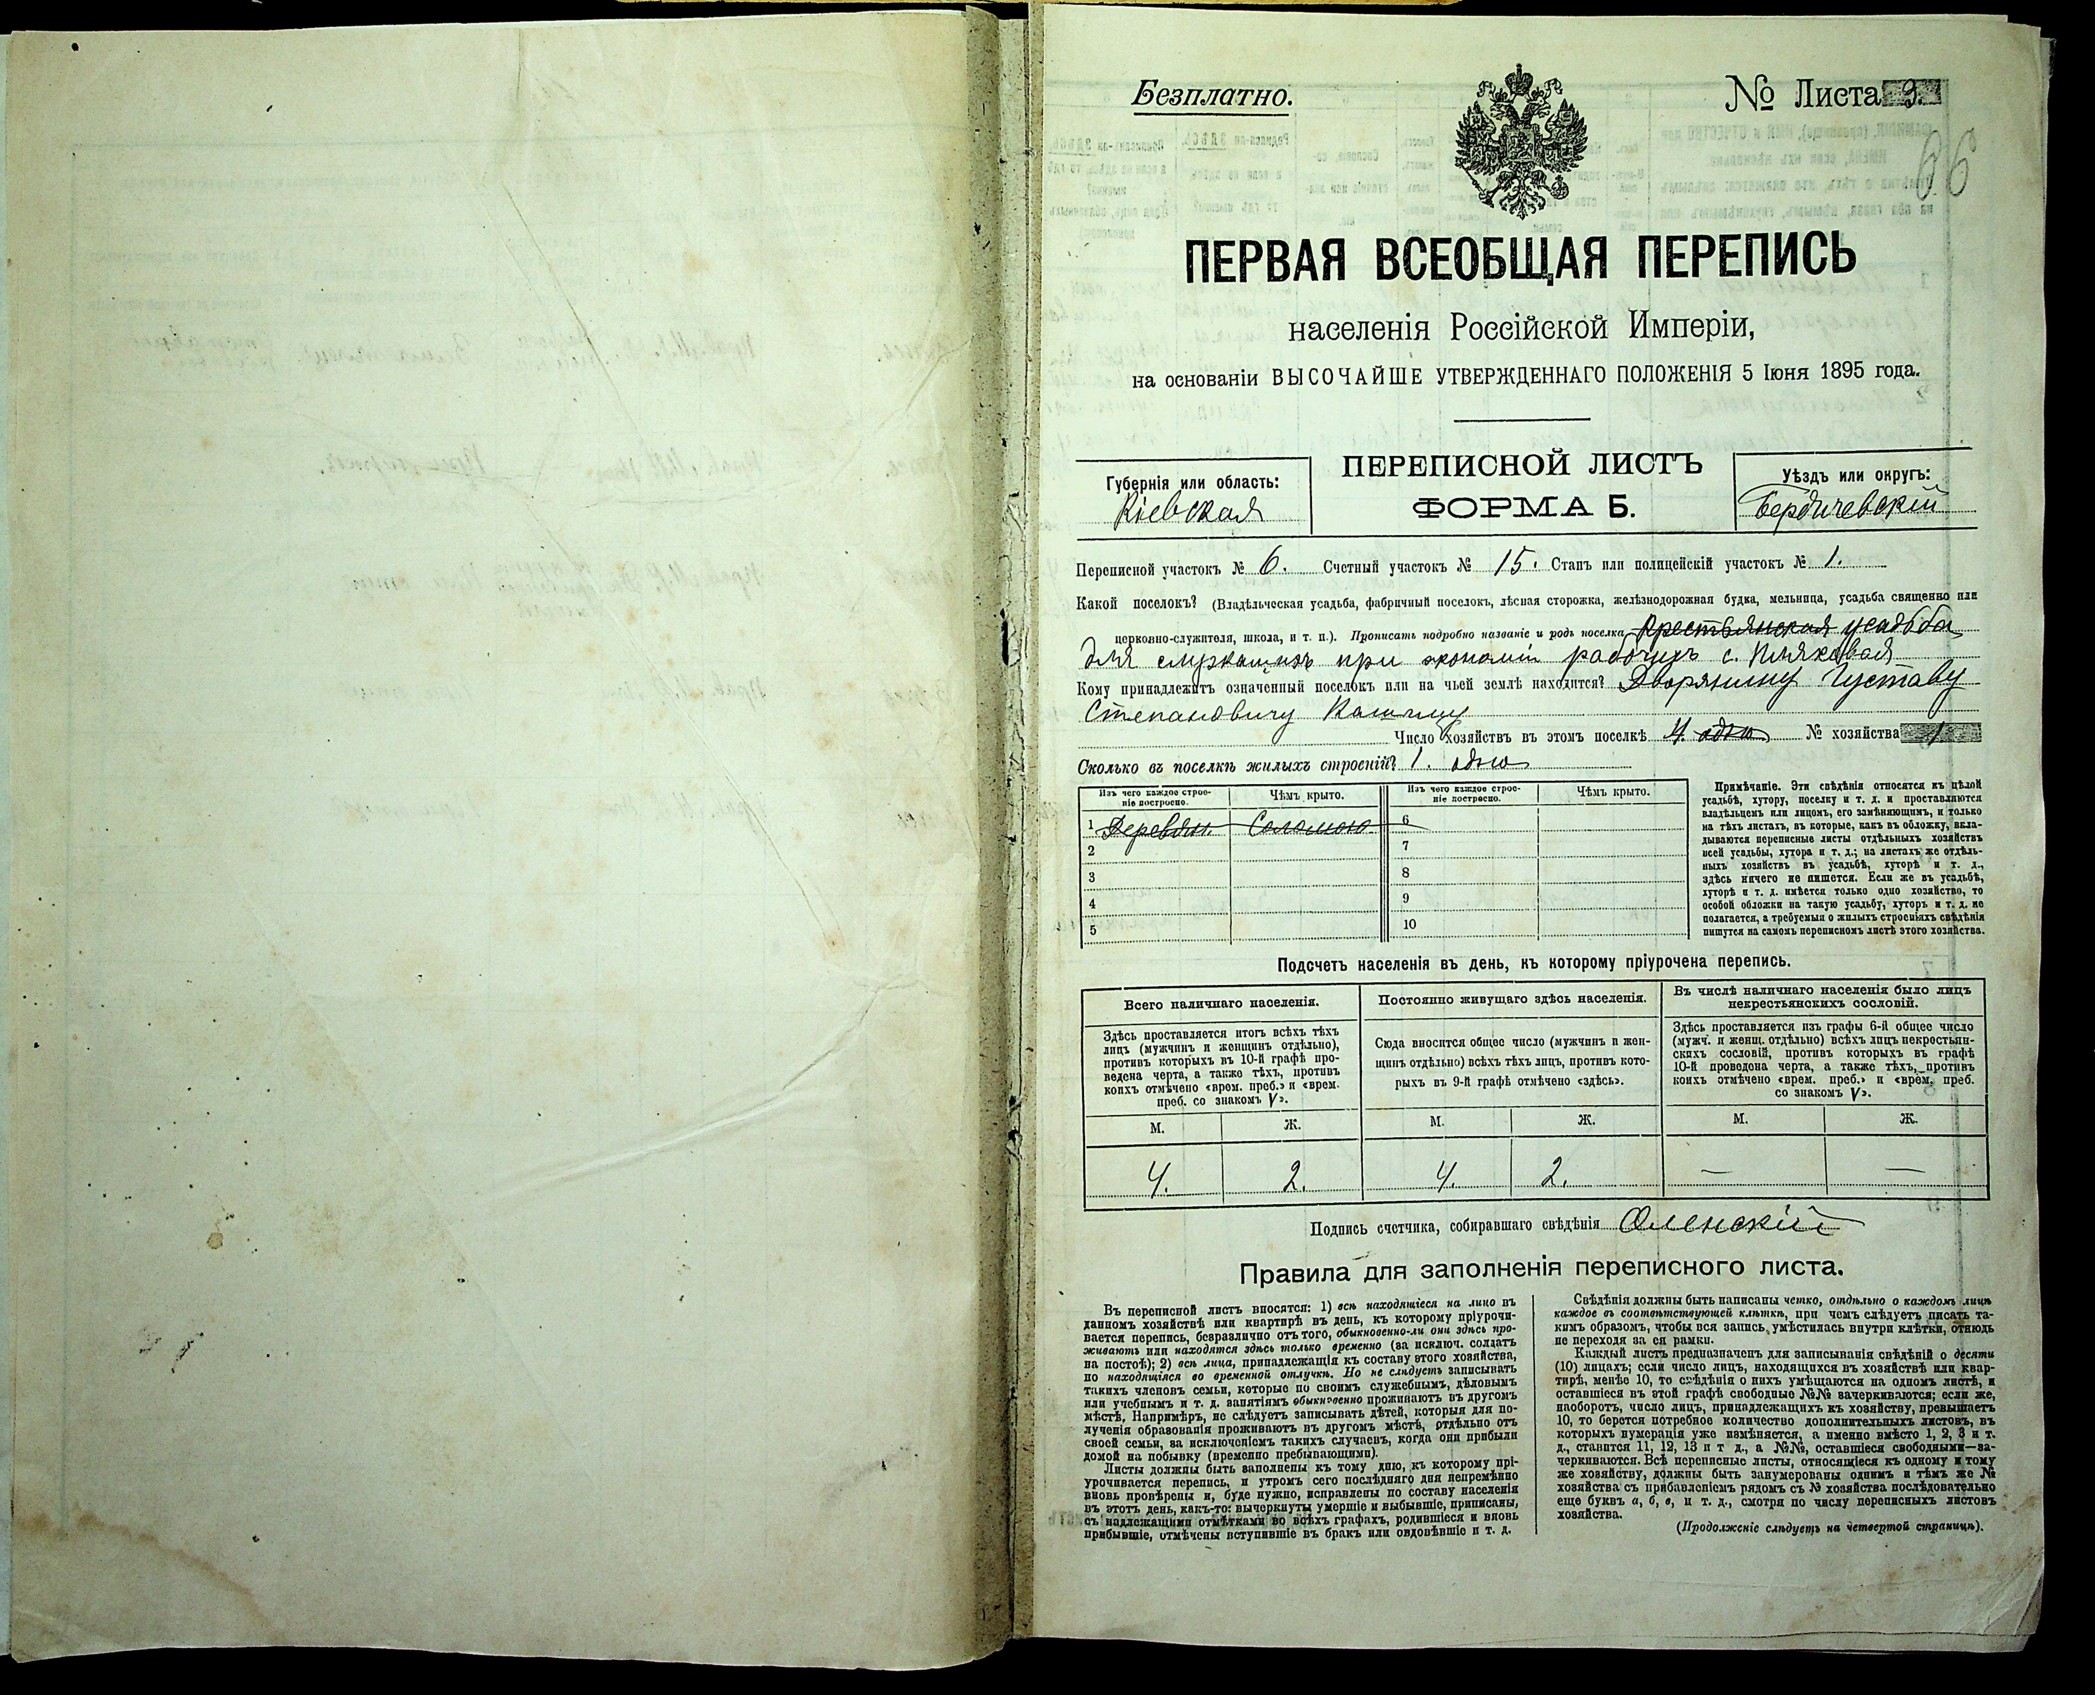 Безплатно.
№ Листа 9.
66
ПЕРВАЯ ВСЕОБЩАЯ ПЕРЕПИСЬ
населенія Россійской Имперіи,
на основаніи ВЫСОЧАЙШЕ УТВЕРЖДЕННАГО ПОЛОЖЕНІЯ 5 Іюня 1895 года.
Губернія или область:
Кіевская
ПЕРЕПИСНОЙ ЛИСТЪ
ФОРМА Б.
Уѣздъ или округъ:
Бердичевскій
Переписной участокъ № 6. Счетный участокъ № 15. Станъ или полицейскій участокъ № 1.
Какой поселокъ? (Владѣльческая усадьба, фабричный поселокъ, лѣсная сторожка, желѣзнодорожная будка, мельница, усадьба священно или
церковно-служителя, школа, и т. п.). Прописать подробно названіе и родъ поселка Крестьянская усадьба
для служащихъ при экономіи рабочихъ с.
Кому принадлежитъ означенный поселокъ или на чьей землѣ находится? Дворянину Густаву
Степановичу
Число хозяйствъ въ этомъ поселкѣ 4. одно № хозяйства 1
Сколько въ поселкѣ жилыхъ строеній? 1. одно
Изъ чего каждое строе-
ніе построено.
Чѣмъ крыто.
Изъ чего каждое строе-
ніе построено.
Чѣмъ крыто.
1 Деревян. Соломою 6
2 7
3 8
4 9
5 10
Примѣчаніе. Эти свѣдѣнія относятся къ цѣлой
усадьбѣ, хутору, поселку и т. д. и проставляются
владѣльцемъ или лицомъ, его замѣняющимъ, и только
на тѣхъ листахъ, въ которые, какъ въ обложку, вкла-
дываются переписные листы отдѣльныхъ хозяйствъ
всей усадьбы, хутора и т. д.; на листахъ же отдѣль-
ныхъ хозяйствъ въ усадьбѣ, хуторѣ и т. д.,
здѣсь ничего не пишется. Если же въ усадьбѣ,
хуторѣ и т. д. имѣется только одно хозяйство, то
особой обложки на такую усадьбу, хуторъ и т. д. не
полагается, а требуемыя о жилыхъ строеніяхъ свѣдѣнія
пишутся на самомъ переписномъ листѣ этого хозяйства.
Подсчетъ населенія въ день, къ которому пріурочена перепись.
Всего наличнаго населенія.
Здѣсь проставляется итогъ всѣхъ тѣхъ
лицъ (мужчинъ и женщинъ отдѣльно),
противъ которыхъ въ 10-й графѣ про-
ведена черта, а также тѣхъ, противъ
коихъ отмѣчено «врем. преб.» и «врем.
преб. со знакомъ V».
Постоянно живущаго здѣсь населенія.
Сюда вносится общее число (мужчинъ и жен-
щинъ отдѣльно) всѣхъ тѣхъ лицъ, противъ кото-
рыхъ въ 9-й графѣ отмѣчено «здѣсь».
Въ числѣ наличнаго населенія было лицъ
некрестьянскихъ сословій.
Здѣсь проставляется изъ графы 6-й общее число
(мужч. и женщ. отдѣльно) всѣхъ лицъ некрестьян-
скихъ сословій, противъ которыхъ въ графѣ
10-й проведена черта, а также тѣхъ, противъ
коихъ отмѣчено «врем. преб.» и «врем. преб.
со знакомъ V».
М. Ж. М. Ж. М. Ж.
4. 2. 4. 2. — —
Подпись счетчика, собиравшаго свѣдѣнія Оленскій
Правила для заполненія переписного листа.
Въ переписной листъ вносятся: 1) всѣ находящіеся на лицо въ
данномъ хозяйствѣ или квартирѣ въ день, къ которому пріурочи-
вается перепись, безразлично отъ того, обыкновенно-ли они здѣсь про-
живаютъ или находятся здѣсь только временно (за исключ. солдатъ
на постоѣ); 2) всѣ лица, принадлежащія къ составу этого хозяйства,
но находящіяся во временной отлучкѣ. Но не слѣдуетъ записывать
такихъ членовъ семьи, которые по своимъ служебнымъ, дѣловымъ
или учебнымъ и т. д. занятіямъ обыкновенно проживаютъ въ другомъ
мѣстѣ. Напримѣръ, не слѣдуетъ записывать дѣтей, которыя для по-
лученія образованія проживаютъ въ другомъ мѣстѣ, отдѣльно отъ
своей семьи, за исключеніемъ такихъ случаевъ, когда они прибыли
домой на побывку (временно пребывающими).
Листы должны быть заполнены къ тому дню, къ которому прі-
урочивается перепись, и утромъ сего послѣдняго дня непремѣнно
вновь провѣрены и, буде нужно, исправлены по составу населенія
въ этотъ день, какъ-то: вычеркнуты умершіе и выбывшіе, приписаны,
съ надлежащими отмѣтками во всѣхъ графахъ, родившіеся и вновь
прибывшіе, отмѣчены вступившіе въ бракъ или овдовѣвшіе и т. д.
Свѣдѣнія должны быть написаны четко, отдѣльно о каждомъ лицѣ
каждое въ соотвѣтствующей клѣткѣ, при чемъ слѣдуетъ писать та-
кимъ образомъ, чтобы вся запись умѣстилась внутри клѣтки, отнюдь
не переходя за ея рамки.
Каждый листъ предназначенъ для записыванія свѣдѣній о десяти
(10) лицахъ; если число лицъ, находящихся въ хозяйствѣ или квар-
тирѣ, менѣе 10, то свѣдѣнія о нихъ умѣщаются на одномъ листѣ, и
оставшіеся въ этой графѣ свободные №№ зачеркиваются; если же,
наоборотъ, число лицъ, принадлежащихъ къ хозяйству, превышаетъ
10, то берется потребное количество дополнительныхъ листовъ, въ
которыхъ нумерація уже измѣняется, а именно вмѣсто 1, 2, 3 и т.
д., ставится 11, 12, 13 и т д., а №№, оставшіеся свободными—за-
черкиваются. Всѣ переписные листы, относящіеся къ одному и тому
же хозяйству, должны быть занумерованы однимъ и тѣмъ же №
хозяйства съ прибавленіемъ рядомъ съ № хозяйства послѣдовательно
еще буквъ а, б, в, и т. д., смотря по числу переписныхъ листовъ
хозяйства.
(Продолженіе слѣдуетъ на четвертой страницѣ).